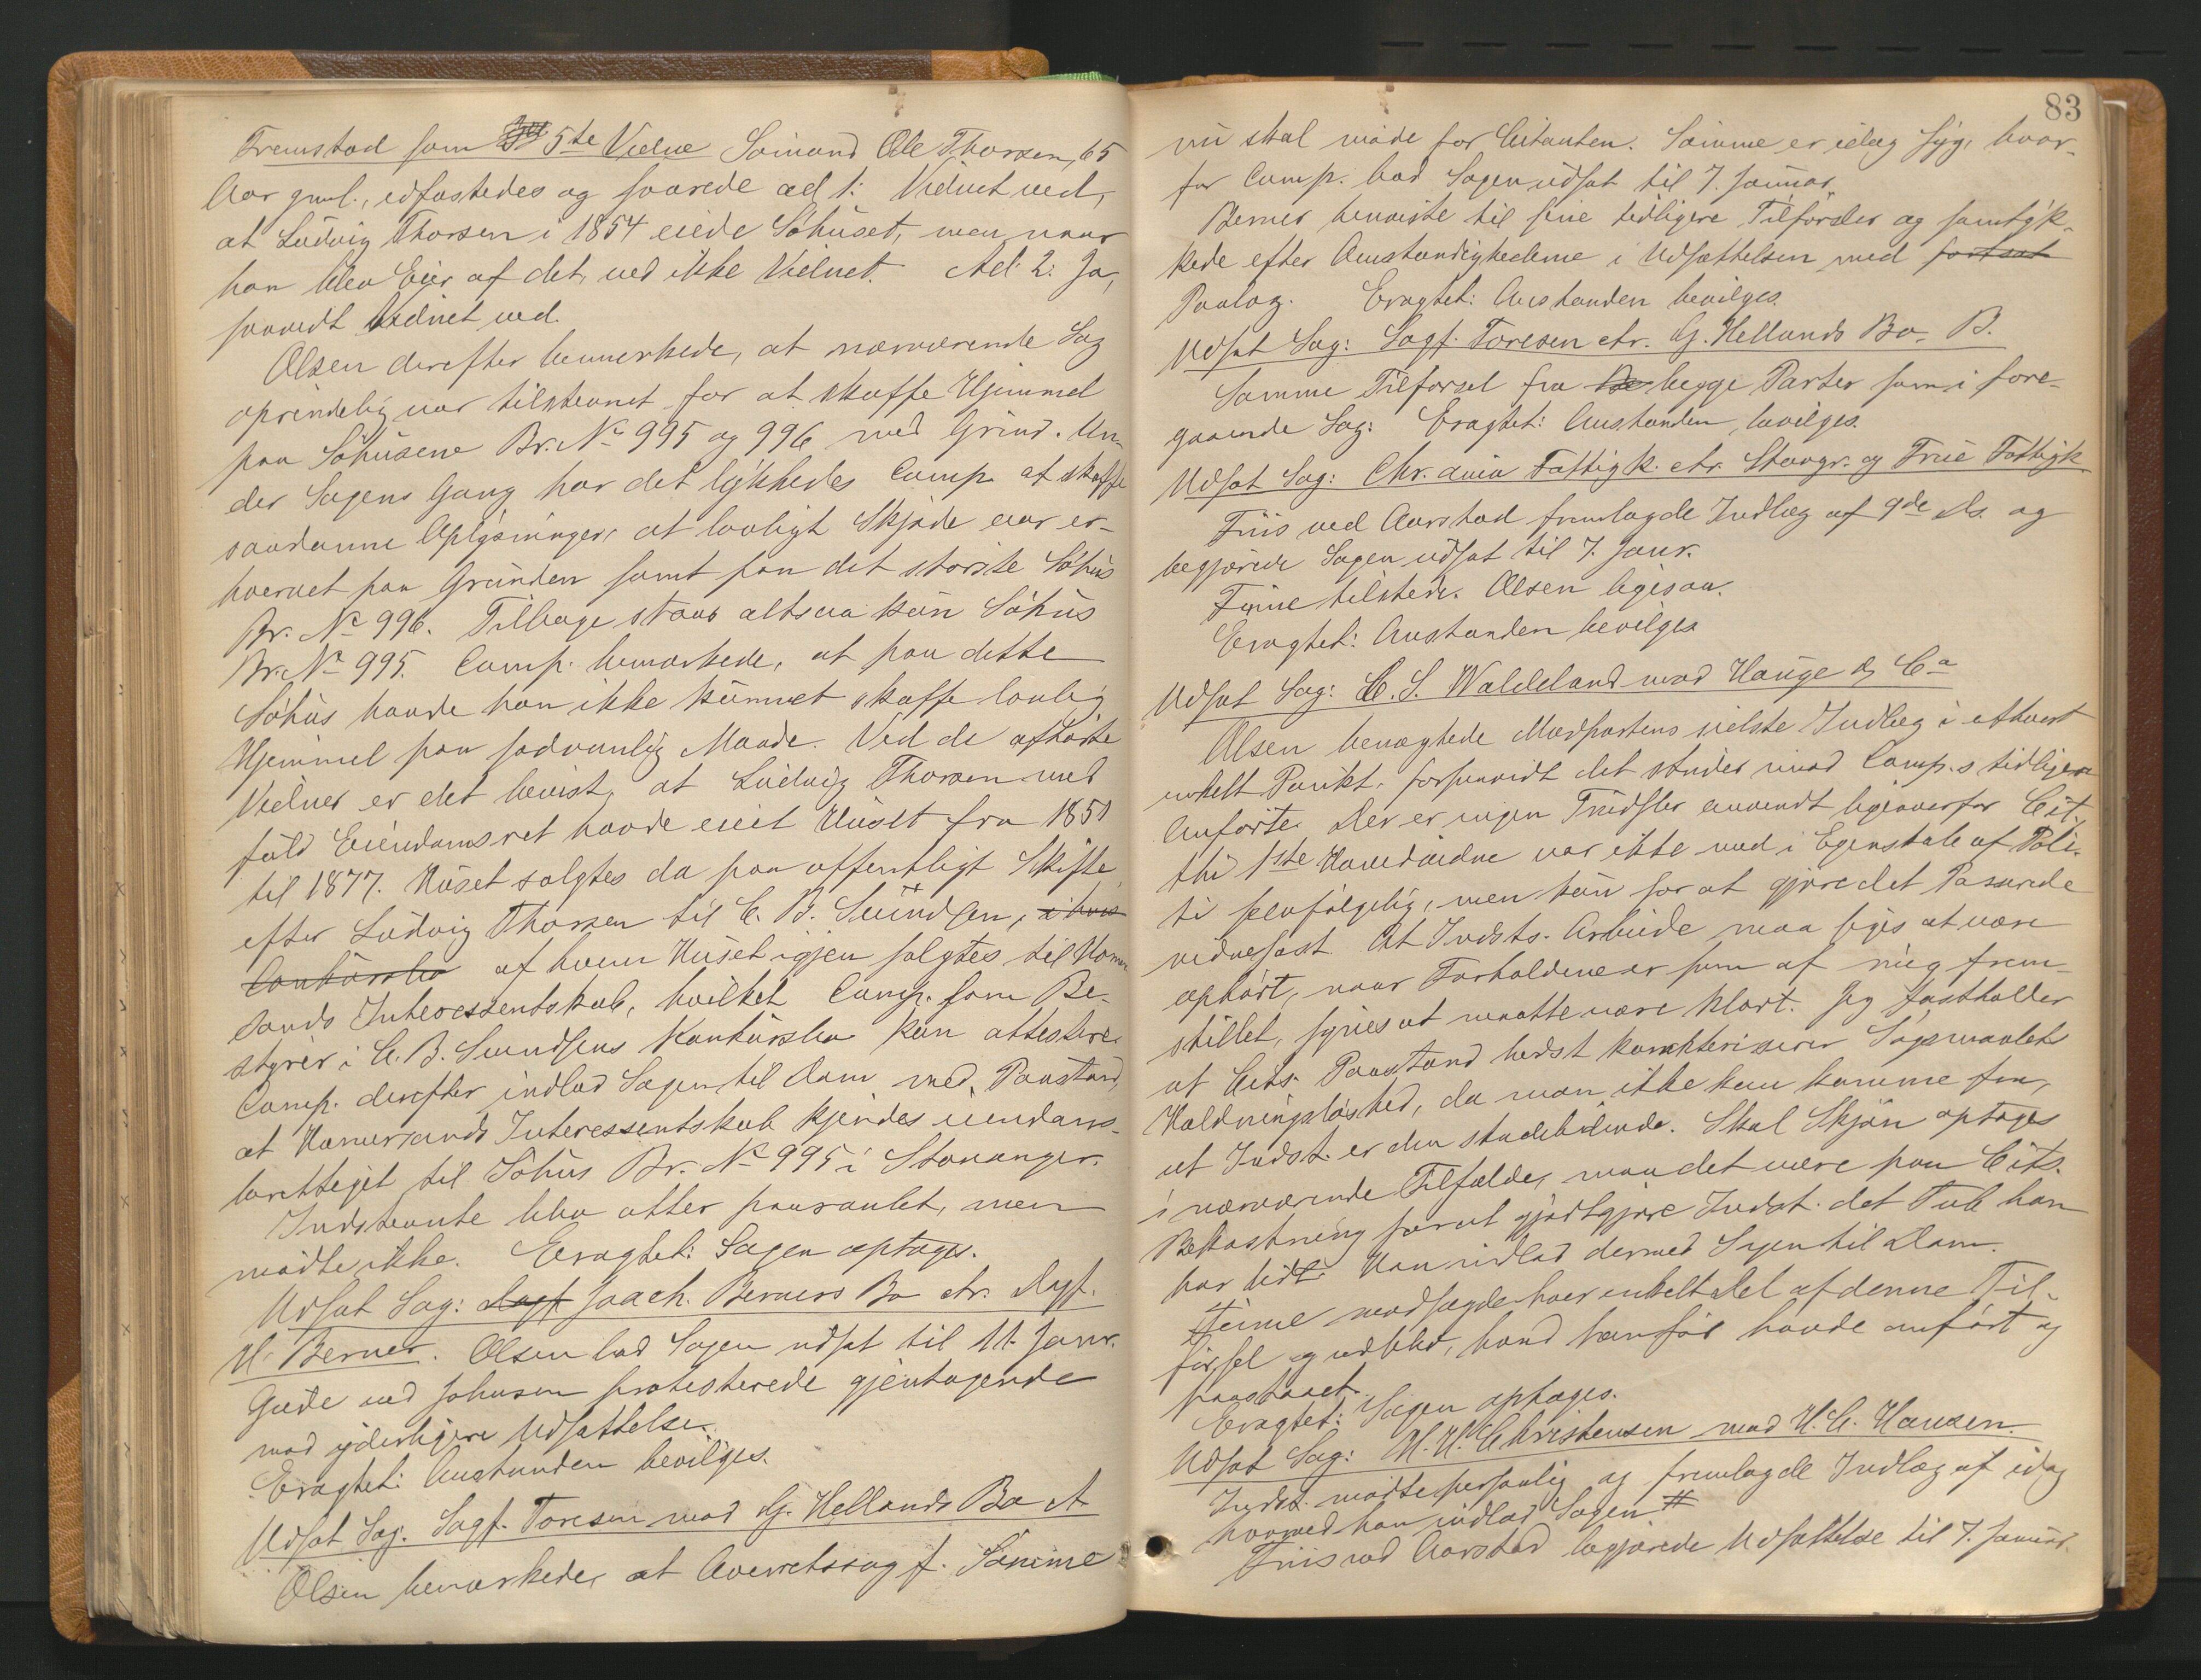 Fremstod som 5te Vidne Sømand Ole Thorsen, 65
Aar gml., edfæstedes og svarede ad 1: Vidnet ved,
at Ludvig Thorsen i 1854 eiede Søhuset, men naar
han blev Eier af det, ved ikke Vidnet. Ad 2: Ja,
saavidt Vidnet ved.
Olsen derefter bemærkede, at nærværende Sag
oprindelig var tilstevnet for at skaffe Hjemmel
paa Søhusene Br. No 995 og 996 med Grund. Un-
der Sagens Gang har det lykkedes Comp. at skaffe
saadanne Oplysninger, at lovligt Skjøde var er-
hvervet paa Grunden samt paa det største Søhus
Br. No 996. Tilbage staar altsaa kun Søhus
Br. No 995. Comp. bemærkede, at paa dette
Søhus havde han ikke kunnet skaffe lovlig
Hjemmel paa sædvanlig Maade. Ved de afhørte
Vidner er det bevist, at Ludvig Thorsen med
fuld Eiendomsret havde eiet Huset fra 1851
til 1877. Huset solgtes da paa offentligt Skifte
efter Ludvig Thorsen til C. B. Svendsen, i hvis
Conkursbo af hvem Huset igjen solgtes til Hommer-
sands Interessentskab, hvilket Comp. som Be-
styrer i C. B. Svendsens Konkursbo kan attestere.
Comp. derefter indlod Sagen til Dom med Paastand,
at Hommersands Interessentskab kjendes eiendoms-
berettiget til Søhus Br. No 995 i Stavanger.
Indstevnte blev atter paaraabt, men
mødte ikke. Eragtet: Sagen optages.
Udsat Sag: Sagf. Joach. Berners Bo ctr. Sagf.
H. Berner. Olsen bad Sagen udsat til 11. Janr.
Gude ved Johnsen protesterede gjentagende
mod yderligere Udsættelse.
Eragtet: Anstanden bevilges.
Udsat Sag. Sagf. Toresen mod G. Hellands Bo A
Olsen bemærkede, at Overretssagf. Sømme
83
nu skal møde for Citanten. Sømme er idag syg, hvor-
for Comp. bad Sagen udsat til 7. Januar.
Berner henviste til sine tidligere Tilførsler og samtyk-
kede efter Omstændighederne i Udsættelsen med fortsat
Paalæg. Eragtet: Anstanden bevilges.
Udsat Sag: Sagf. Toresen ctr. G. Hellands Bo. B.
Samme Tilførsel fra De begge Parter som i fore-
gaaende Sag: Eragtet: Anstanden bevilges.
Udsat Sag: Chr.ania Fattigk. ctr. Stavgr. og Frue Fattigk.
Friis ved Aarstad fremlagde Indlæg af 9de ds. og
begjærede Sagen udsat til 7. Janr.
Feine tilstede. Olsen ligesaa.
Eragtet: Anstanden bevilges
Udsat Sag: C. S. Waldeland mod Hauge & Ca
Olsen benægtede Modpartens sidste Indlæg i ethvert
enkelt Punkt, forsaavidt det strider imod Comp.s tidligere
Anførte. Der er ingen Trudsler anvendt ligeoverfor Cit.
thi 1ste Hovedvidne var ikke med i Egenskab af Poli-
ti selvfølgelig, men kun for at gjøre det Passerede
vidnefast. At Indsts. Arbeide maa siges at være
ophørt, naar Forholdene er som af mig frem-
stillet, synes at maatte være klart. Jeg fastholder
at Cits. Paastand bedst karakteriserer Søgsmaalets
Holdningsløshed, da man ikke kan komme fra,
at Indst. er den skadelidende. Skal Skjøn optages
i nærværende Tilfælde, maa det være paa Cits.
Bekostning for at godtgjøre Indst. det Tab han
har lidt. Han indlod dermed Sagen til Dom.
Feine modsagde hver enkelt Del af denne Til-
førsel og vedblev, hvad han før havde anført og
paastaaet.
Eragtet: Sagen optages.
Udsat Sag: H. H. Christensen mod H. C. Hansen.
Indst. mødte personlig og fremlagde Indlæg af idag
hvormed han indlod Sagen #
Friis ved Aarstad begjærede Udsættelse til 7. Januar.